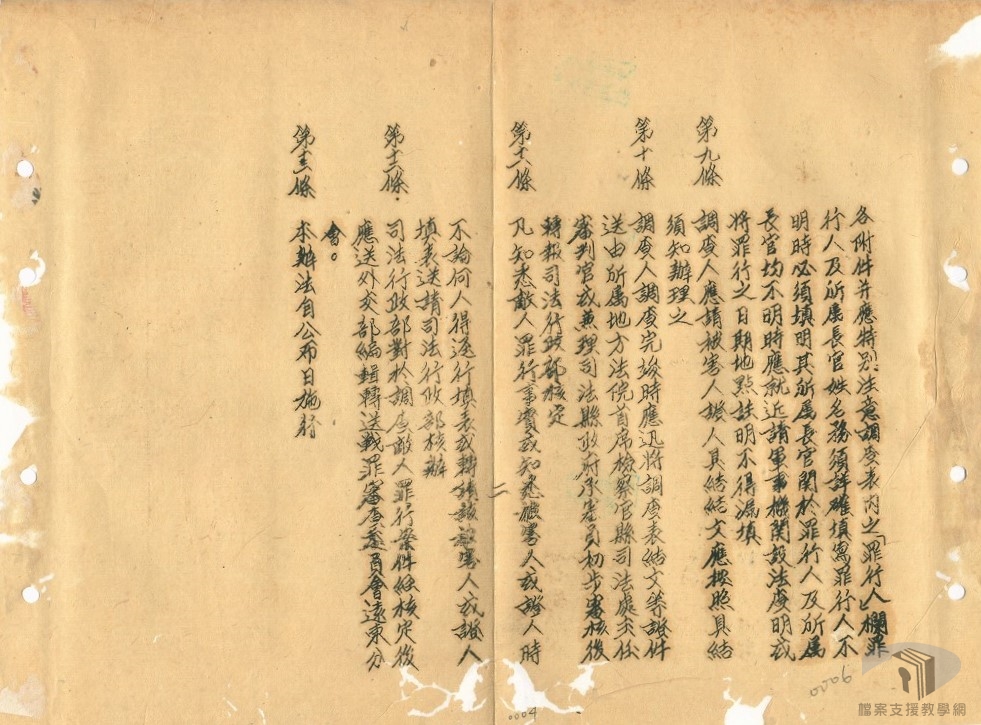 各附件并應特別注意調查表內之「罪行人」欄罪
行人及所屬長官姓名務須詳確填寫罪行人不
明時必須填明其所屬長官關於罪行人及所屬
長官均不明時應就近請軍事機關設法查明或
將罪行之日期地點註明不得漏填
第九條
調查人應請被害人證人具結結文應按照具結
須知辦理之
第十條
調查人調查完竣時應迅將調查表結文等證件
送由所屬地方法院首席檢察官縣司法處主任
審判官或兼理司法縣政府承審員初步審核後
轉報司法行政部核定
第十一條
凡知悉敵人罪行事實或知悉被害人或證人時
二
不論何人得逕行填表或轉請該被害人或證人
填表送請司法行政部核辦
第十二條
司法行政部對於調查敵人罪行案件經核定後
應送外交部編輯轉送戰罪審查委員會遠東分
會。
第十三條
本辦法自公布日施行
0006
0004
檔案支援教學網